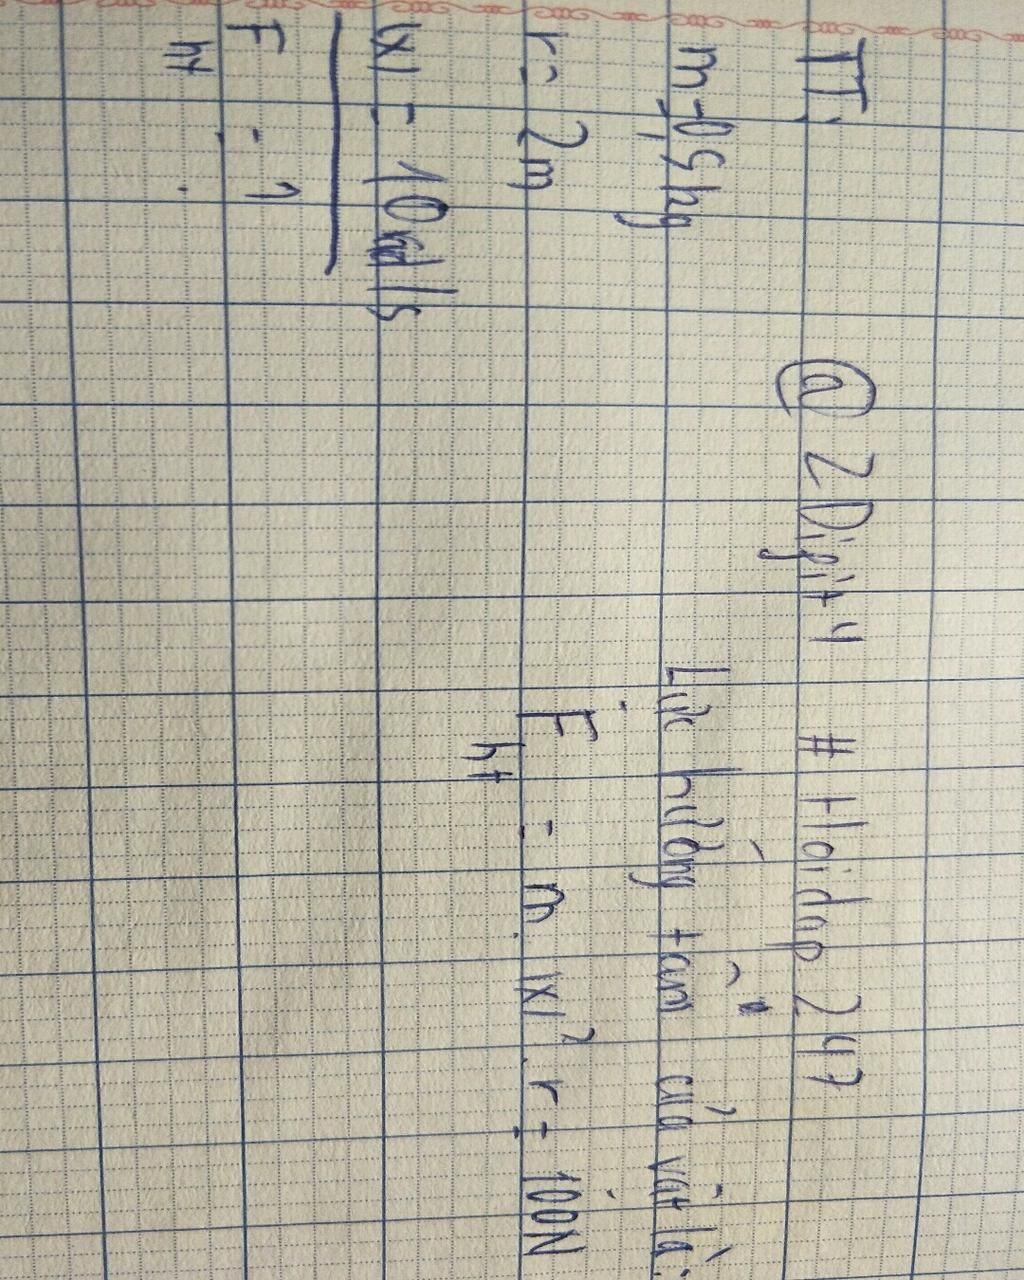 TT:
m=0,5kg
r= 2m
|x| = 10rad/s
F ht = ?
@ 2Digit4 # Hoidap247
Lực hướng tâm của vật là:
F ht = m. |x|². r = 100N